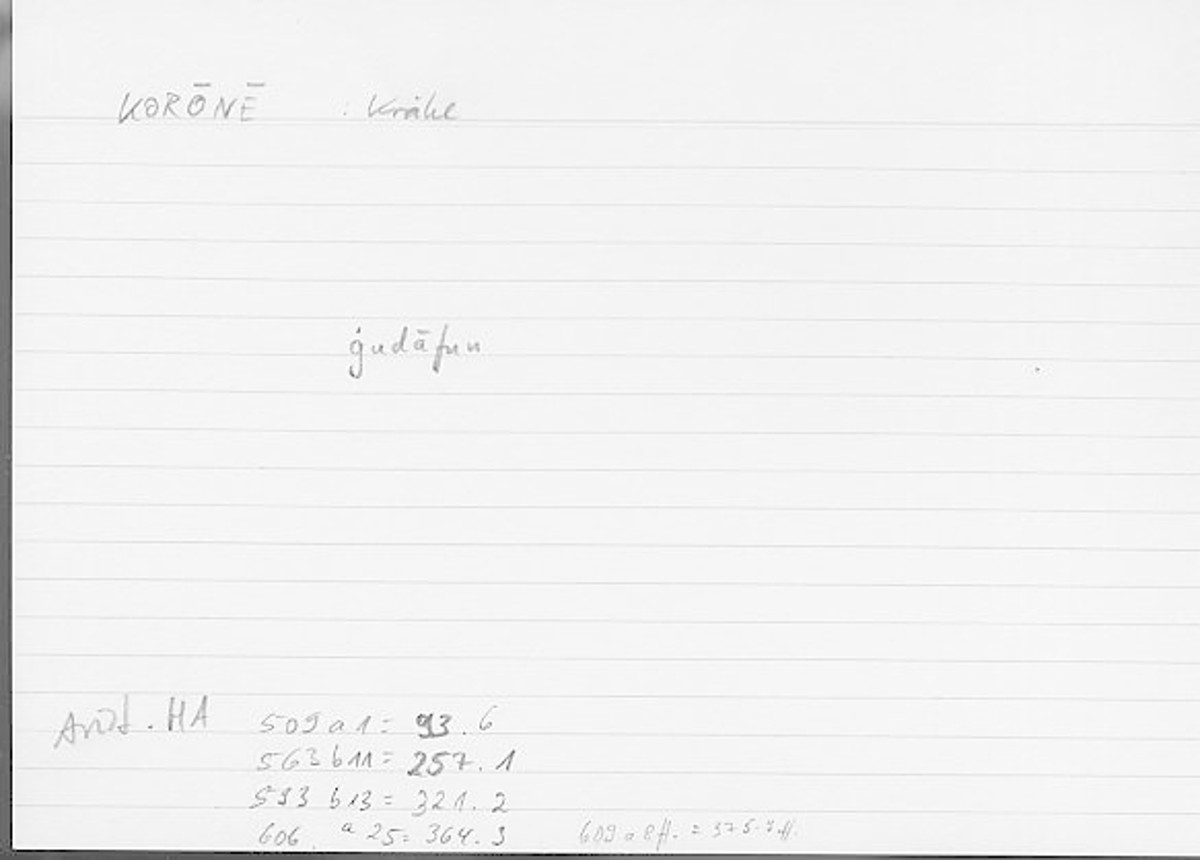 KORŌNĒ : Krähe
ġudāfun
Arist. HA 509 a 1 = 93.6
563 b 11 = 257.1
593 b 13 = 321.2
606 a 25 = 364.3 609 a 8 ff. =